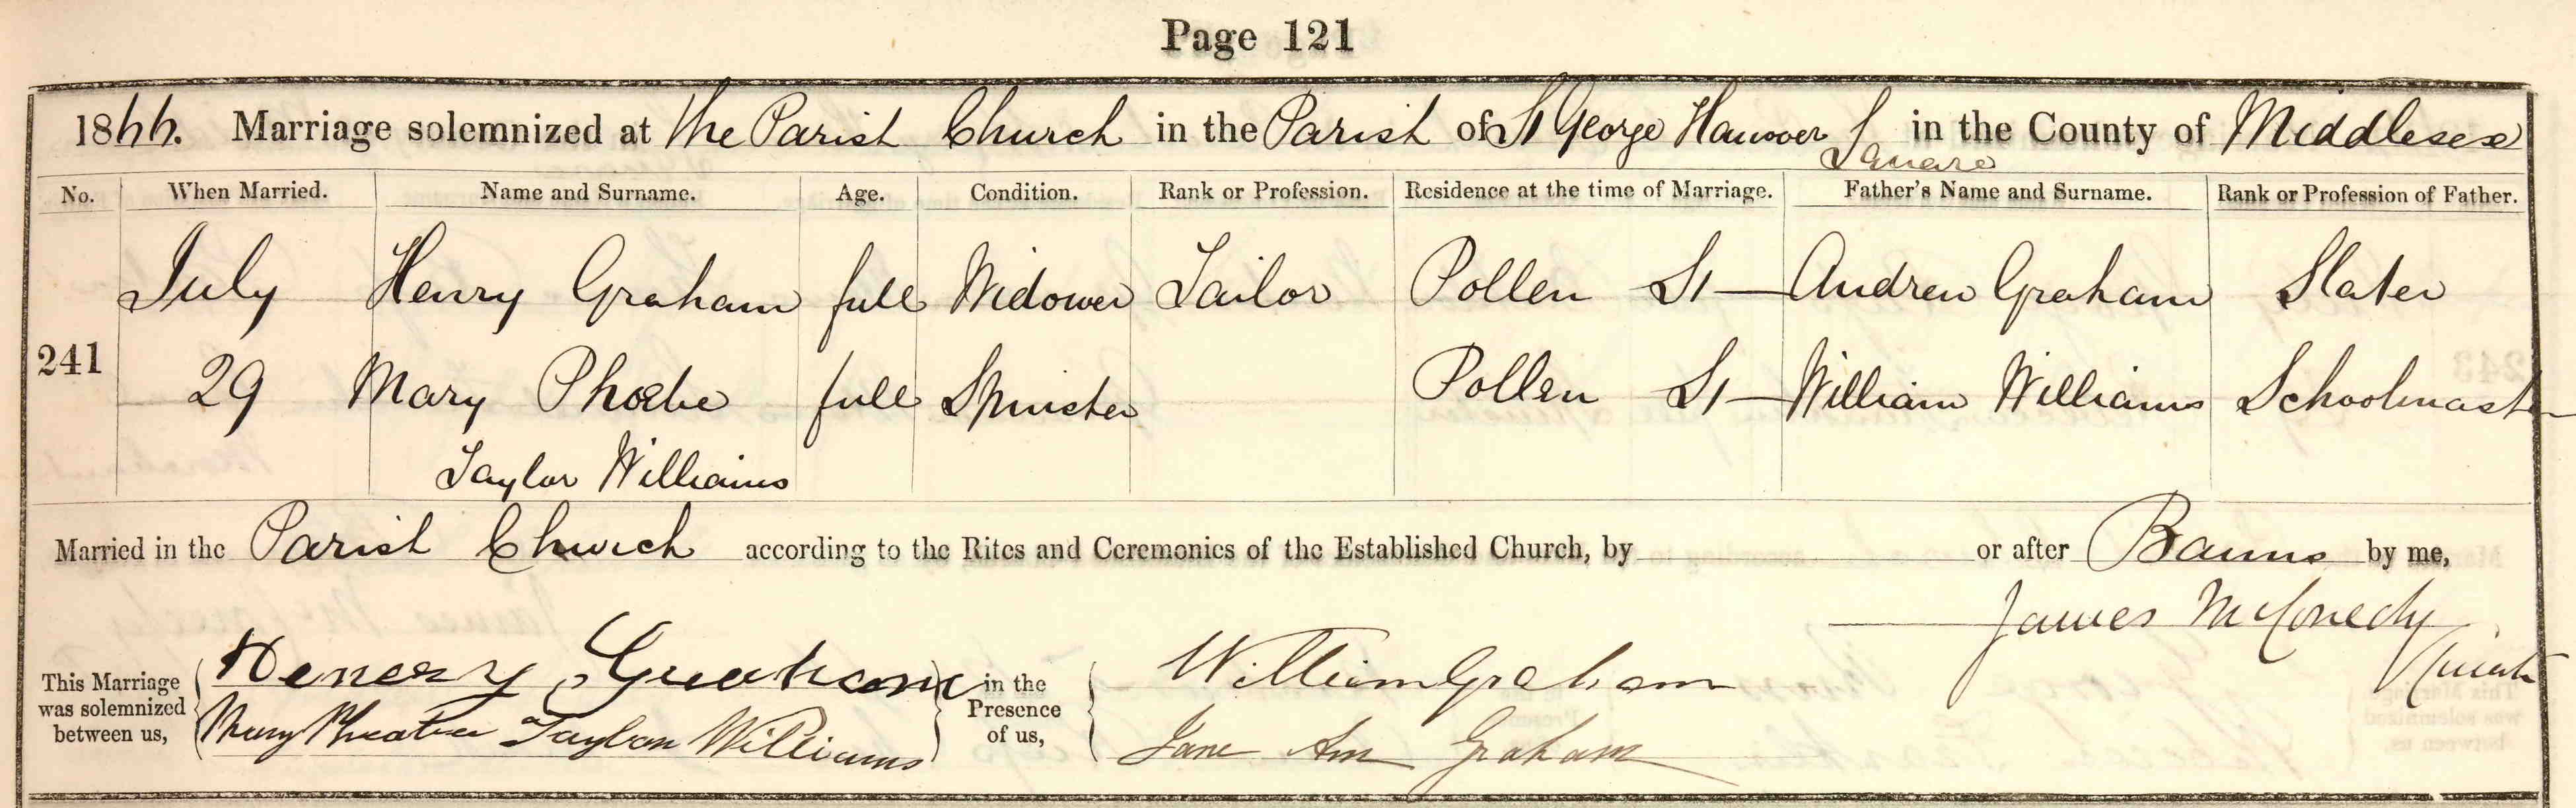 Page 121
1866. Marriage solemnized at The Parish Church in the Parish of St George Hanover Square in the County of Middlesex
No. When Married. Name and Surname. Age. Condition. Rank or Profession. Residence at the time of Marriage. Father's Name and Surname. Rank or Profession of Father.
July Henry Graham full Widower Tailor Pollen St Andrew Graham Slater
241 29 Mary Phoebe full Spinster Pollen St William Williams Schoolmaster
Taylor Williams
Married in the Parish Church according to the Rites and Ceremonies of the Established Church, by or after Banns by me,
James
This Marriage was solemnized between us, Henery Graham in the Presence of us, William Graham
Mary Taylor Williams Jane Ann Graham